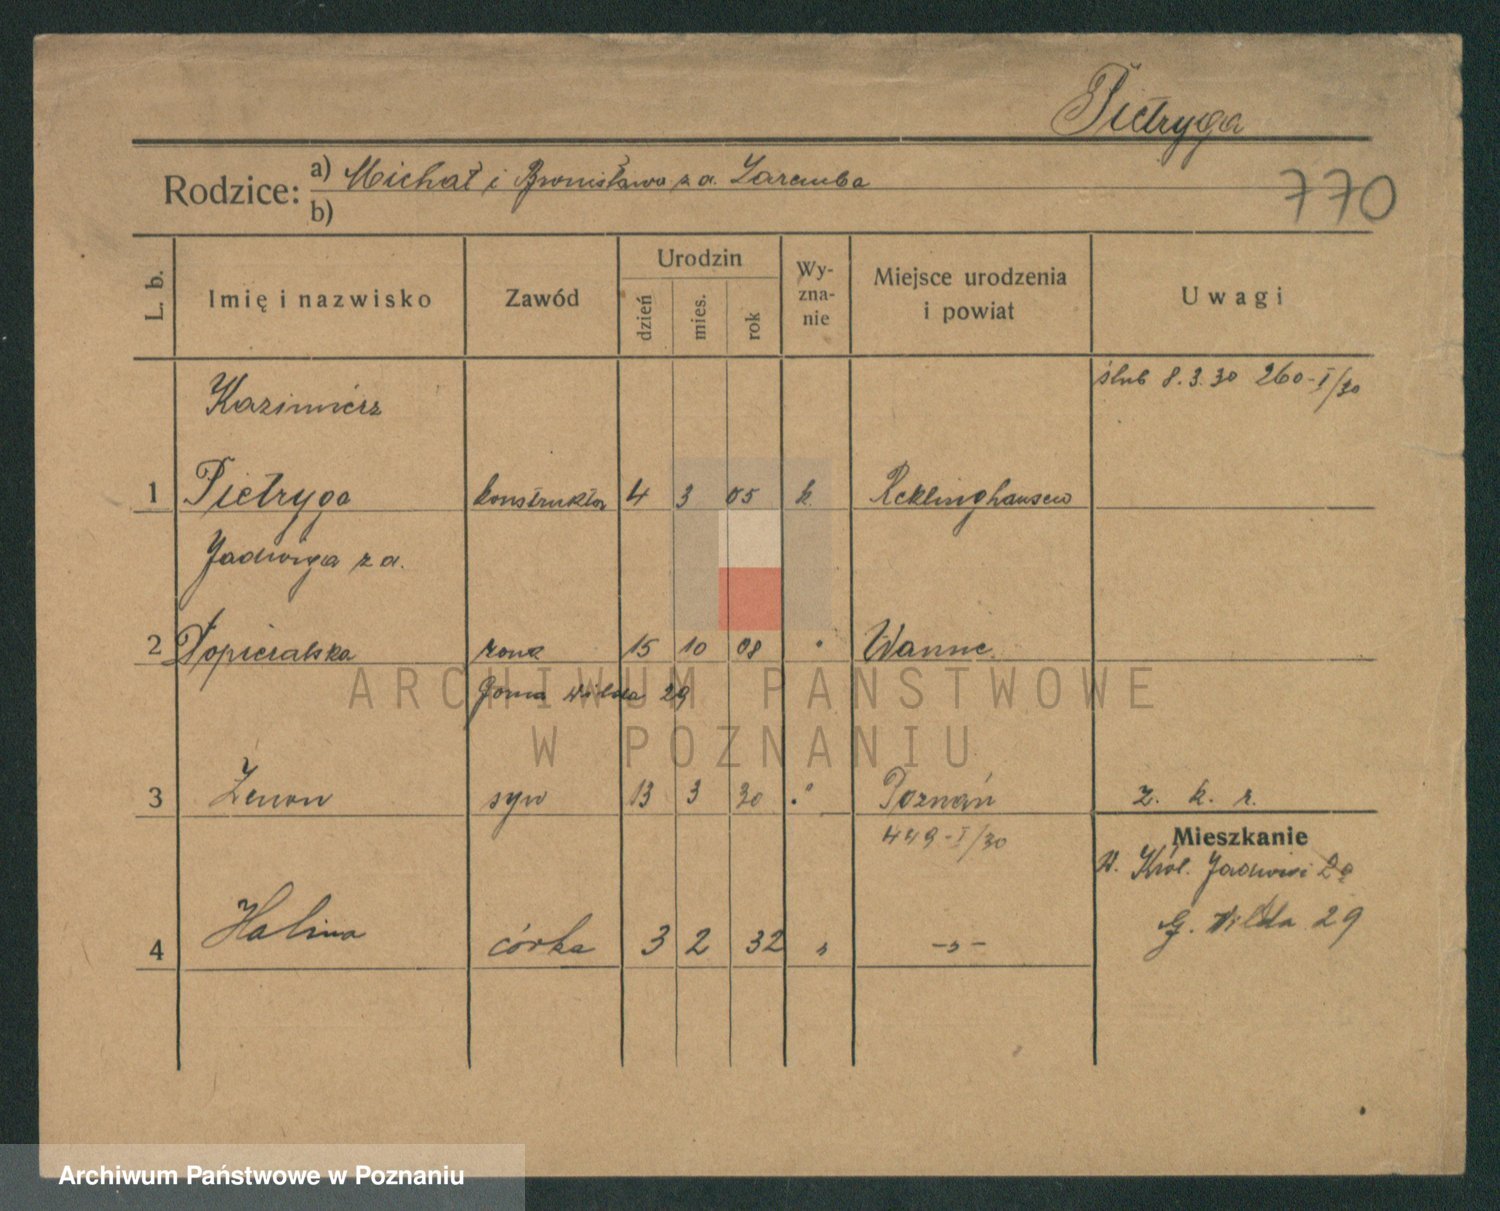 Pietryga
Rodzice: a) Michał i Bronisława z d. Zaremba
b)
770
L. b.
Imię i nazwisko
Zawód
Urodzin
dzień
mies.
rok
Wy-
zna-
nie
Miejsce urodzenia
i powiat
Uwagi
Kazimierz
ślub 8.3.30 260-I/30
1 Pietryga konstruktor 4 3 05 k. Recklinghausen
Jadwiga z d.
2 Popieralska żona 15 10 08 " Wanne.
Górna Wilda 29
3 Zenon syn 13 3 30 " Poznań z. k. r.
449-I/30
Mieszkanie
W. Król. Jadwigi 2a
G. Wilda 29
4 Halina córka 3 2 32 " -"-
ARCHIWUM PAŃSTWOWE
W POZNANIU
Archiwum Państwowe w Poznaniu